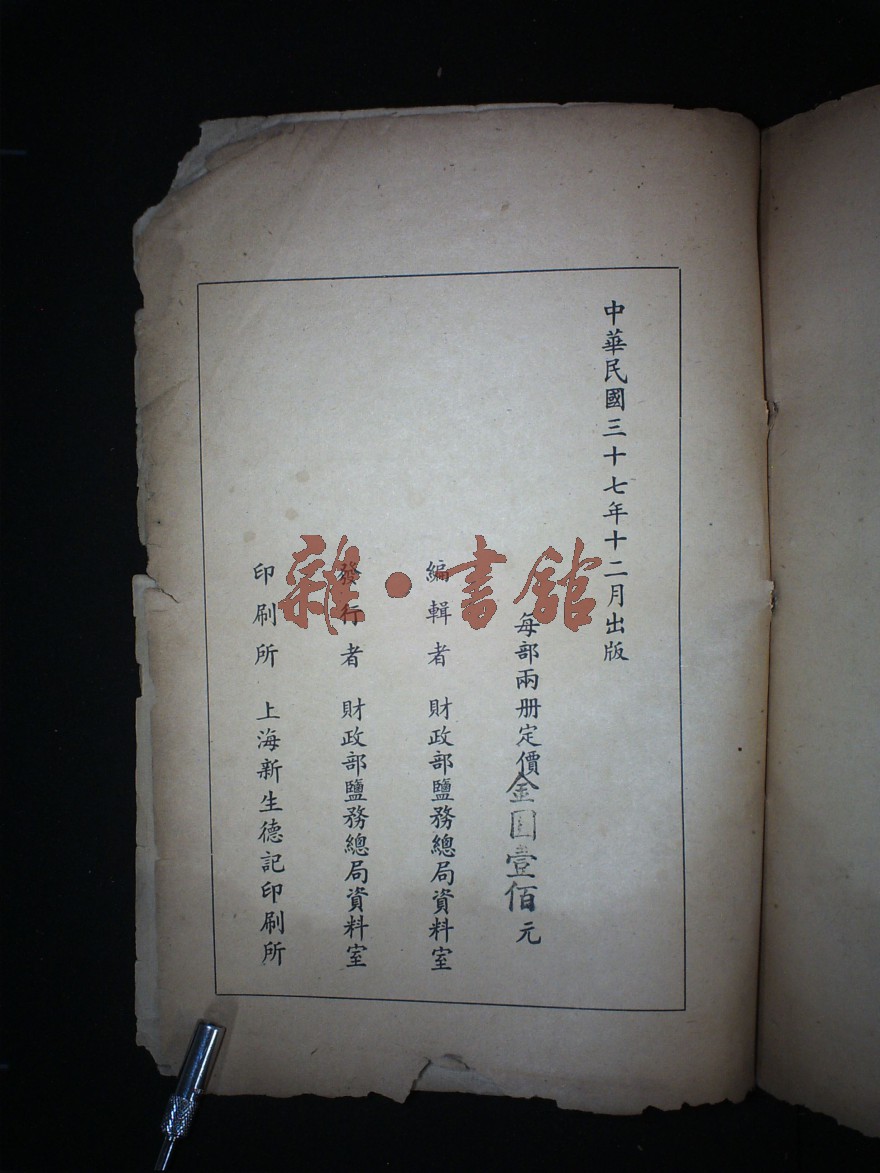 中華民國三十七年十二月出版
每部兩册定價金圓壹佰元
編輯者 財政部鹽務總局資料室
發行者 財政部鹽務總局資料室
印刷所 上海新生德記印刷所
雜·書館